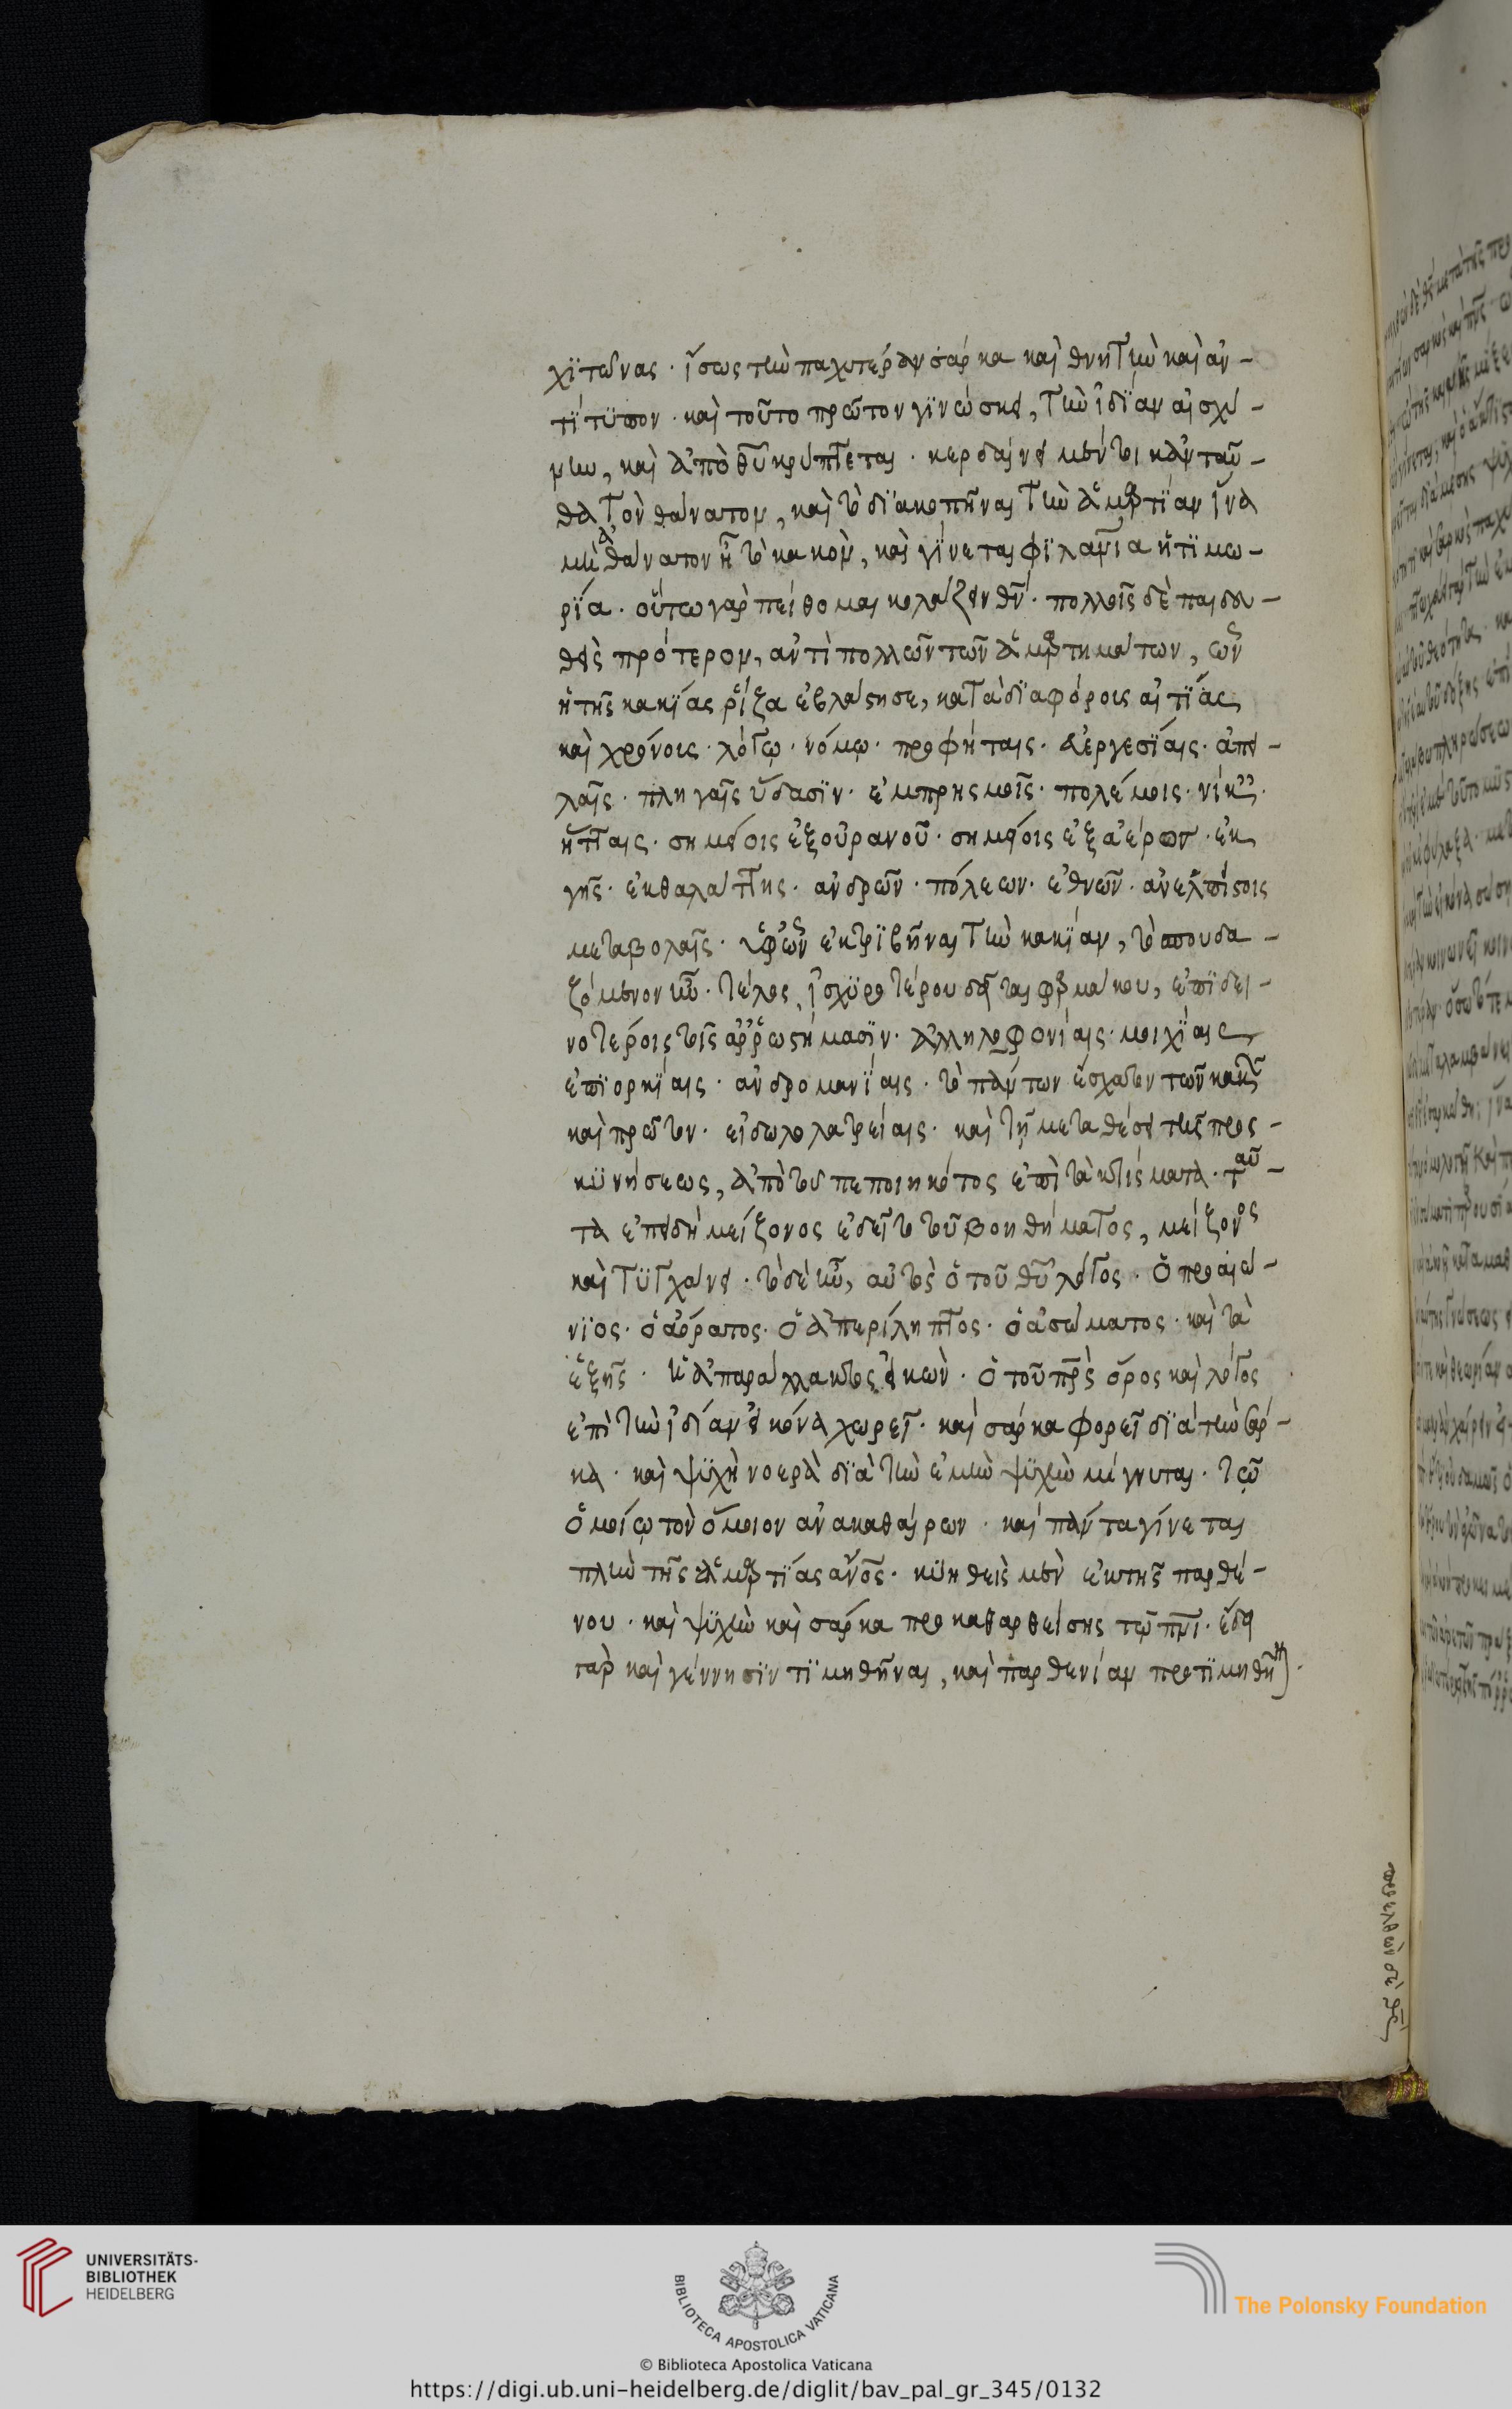 χϊτῶνας · ἴσως τὴν παχυτέραν σάρκα καὶ θνητὴν καὶ ἀν-
τίτϋπον · καὶ τοῦτο πρῶτον γϊνώσκει, τὴν ἰδίαν αἰσχύ-
νην, καὶ ἀπὸ θῡ κρύπτεται · κερδαίνει μέν τοι κἀνταῦ-
θα τὸν θάνατον, καὶ τὸ διακοπῆναι τὴν ἁμαρτίαν ἵνα
μὴ ἀθάνατον ᾖ τὸ κακὸν, καὶ γίνεται φιλανῑα ἡ τιμω-
ρία · οὕτω γὰρ πείθομαι κολάζειν θν̄ · πολλοῖς δὲ παιδευ-
θεὶς πρότερον, ἀντὶ πολλῶν τῶν ἁμαρτημάτων, ὧν
ἡ τῆς κακίας ῥίζα ἐβλάστησε, κατὰ διαφόροις αἰτίας
καὶ χρόνοις · λόγῳ · νόμῳ · προφήταις · εὐεργεσίαις · ἀπει-
λαῖς · πληγαῖς ὕδασϊν · ἐμπρησμοῖς · πολέμοις · νίκαις ·
ἥτταις · σημείοις ἐξ οὐρανοῦ · σημείοις ἐξ ἀέρων · ἐκ
γῆς · ἐκ θαλάττης · ἀνδρῶν · πόλεων · ἐθνῶν · ἀνελπίστοις
μεταβολαῖς · ὑφ' ὧν ἐκτριβῆναι τὴν κακίαν, τὸ σπουδα-
ζόμενον ἦν · τέλος ἰσχϋροτέρου δεῖται φαρμάκου, ἐπὶ δει-
νοτέροις τοῖς ἀρρωστήμασϊν · ἀλληλοφονίαις · μοιχίαις
ἐπιορκίαις · ἀνδρομανίαις · τὸ πάντων ἔσχατον τῶν κακῶν
καὶ πρῶτον · εἰδωλολατρείαις · καὶ τῇ μεταθέσει τῆς προσ-
κϋνήσεως, ἀπὸ τοῦ πεποιηκότος ἐπὶ τὰ κτίσματα · ταῦ-
τα ἐπειδὴ μείζονος ἐδεῖτο τοῦ βοηθήματος, μείζονος
καὶ τϋγχάνει · τὸ δὲ ἦν, αὐτὸς ὁ τοῦ θῡ λόγος · ὁ προαιώ-
νιος · ὁ ἀόρατος · ὁ ἀπερίληπτος · ὁ ἀσώματος · καὶ τὰ
ἑξῆς · ἡ ἀπαράλλακτος εἰκὼν · ὁ τοῦ πρ̄ς ὅρος καὶ λόγος
ἐπὶ τὴν ἰδίαν εἰκόνα χωρεῖ · καὶ σάρκα φορεῖ διὰ τὴν σάρ-
κα · καὶ ψϋχῇ νοερᾷ διὰ τὴν ἐμὴν ψϋχὴν μίγνυται · τῷ
ὁμοίῳ τὸν ὅμοιον ἀνακαθαίρων · καὶ πάντα γίνεται
πλὴν τῆς ἁμαρτίας ἄνος · κϋηθεὶς μὲν ἐκ τῆς παρθέ-
νου · καὶ ψϋχὴν καὶ σάρκα προκαθαρθείσης τῷ πνῑ · ἔδει
γὰρ καὶ γέννησϊν τιμηθῆναι, καὶ παρθενίαν προτιμηθῆναι ·
UNIVERSITÄTS-
BIBLIOTHEK
HEIDELBERG
BIBLIOTECA APOSTOLICA VATICANA
The Polonsky Foundation
© Biblioteca Apostolica Vaticana
https://digi.ub.uni-heidelberg.de/diglit/bav_pal_gr_345/0132